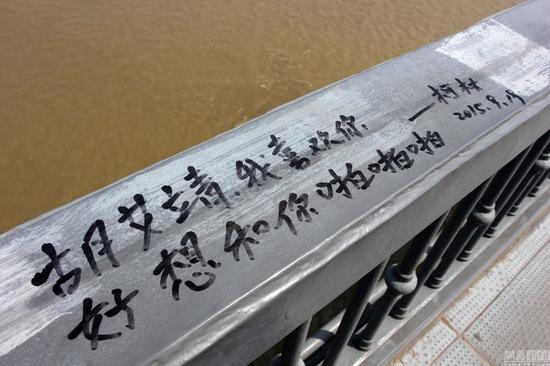 胡艾靖.我喜欢你.
好想和你啪啪啪
—柯林
2015.9.19